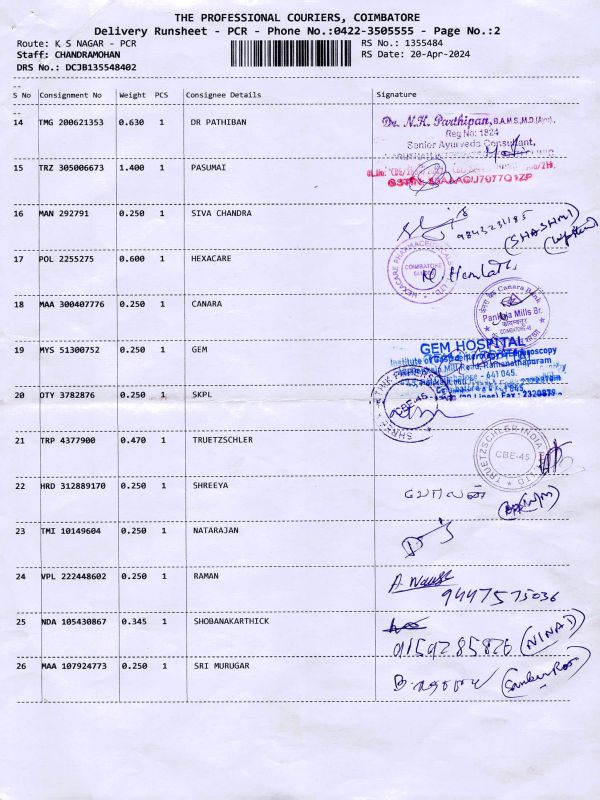 THE PROFESSIONAL COURIERS, COIMBATORE
Delivery Runsheet - PCR - Phone No.:0422-3505555 - Page No.:2
Route: K S NAGAR - PCR RS No.: 1355484
Staff: CHANDRAMOHAN RS Date: 20-Apr-2024
DRS No.: DCJB135548402
S No Consignment No Weight PCS Consignee Details Signature
14 TMG 200621353 0.630 1 DR PATHIBAN
Dr. N.H. Parthipan, B.A.M.S.,M.D.(Ayu),
Reg No: 1824
Senior Ayurveda Consultant,
15 TRZ 305006673 1.400 1 PASUMAI
16 MAN 292791 0.250 1 SIVA CHANDRA
9843231185
(SHASHMI)
17 POL 2255275 0.600 1 HEXACARE
HEXACARE PHARMACEUTICALS
COIMBATORE
18 MAA 300407776 0.250 1 CANARA
Canara Bank
Pankaja Mills Br.
COIMBATORE-45
19 MYS 51300752 0.250 1 GEM
GEM HOSPITAL
20 OTY 3782876 0.250 1 SKPL
CBE-45
21 TRP 4377900 0.470 1 TRUETZSCHLER
TRUETZSCHLER INDIA
LTD
CBE-45
22 HRD 312889170 0.250 1 SHREEYA
23 TMI 10149604 0.250 1 NATARAJAN
24 VPL 222448602 0.250 1 RAMAN
9447575036
25 NDA 105430867 0.345 1 SHOBANAKARTHICK
9159285826 (NINAD)
26 MAA 107924773 0.250 1 SRI MURUGAR